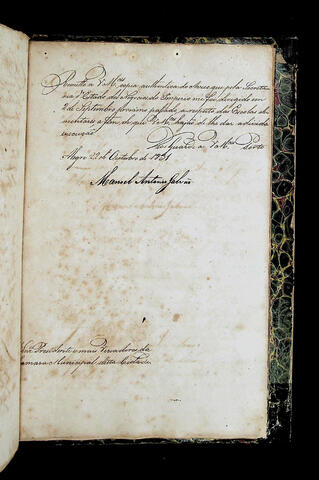 Remetto a V.Mces copia authentica do Aviso que pela Secreta-
ria d'Estado dos Negocios do Imperio me foi dirigido em
2 de Septembro proximo passado, a respeito das Escolas ele-
mentares a fim, de que V.Mces hajão de lhe dar a devida
execução.
Deos Guarde a V.Mces Porto
Alegre 22 de Outubro de 1831
Manoel Antonio Galvão
Snr.es Presidente e mais Vereadores da
Camara Municipal desta Cidade.